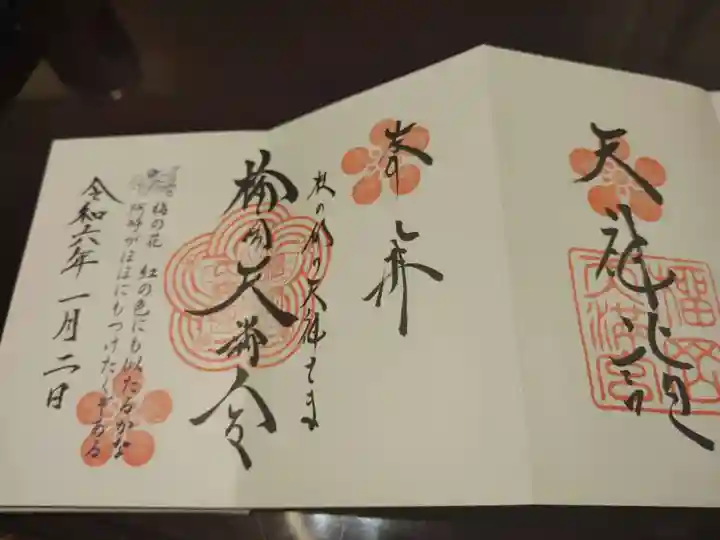 天神
奉拝
杜の都の天神さま
榴岡天満宮
梅の花 紅の色にも似たるかな
阿呼がほほにもつけたくぞある
令和六年一月二日